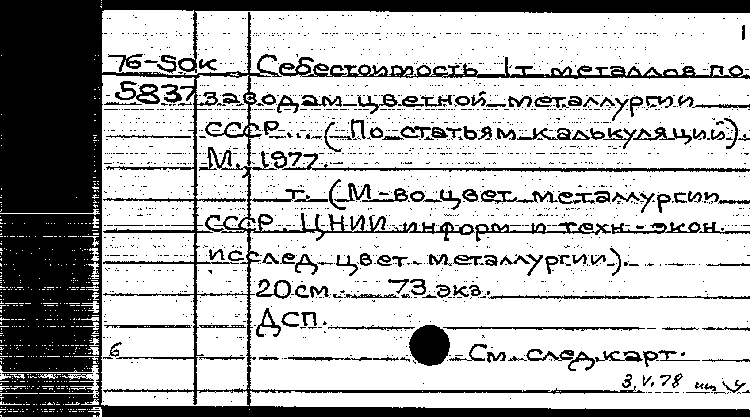 1
76-50к Себестоимость 1т металлов по
5837 заводам цветной металлургии
СССР... (По статьям калькуляций).
М., 1977.
т. (М-во цвет. металлургии
СССР. ЦНИИ информ и техн.-экон.
исслед. цвет. металлургии).
20см. 73 экз.
ДСП.
6 См. след. карт.
3.V.78